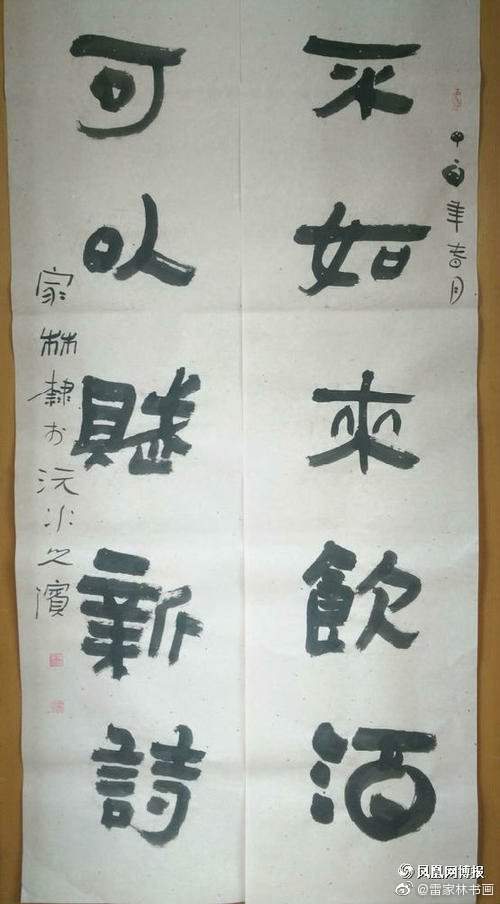 年春月
不如來飲酒
可以賦新詩
家林隸於沅水之濱
凤凰网博报
@雷家林书画